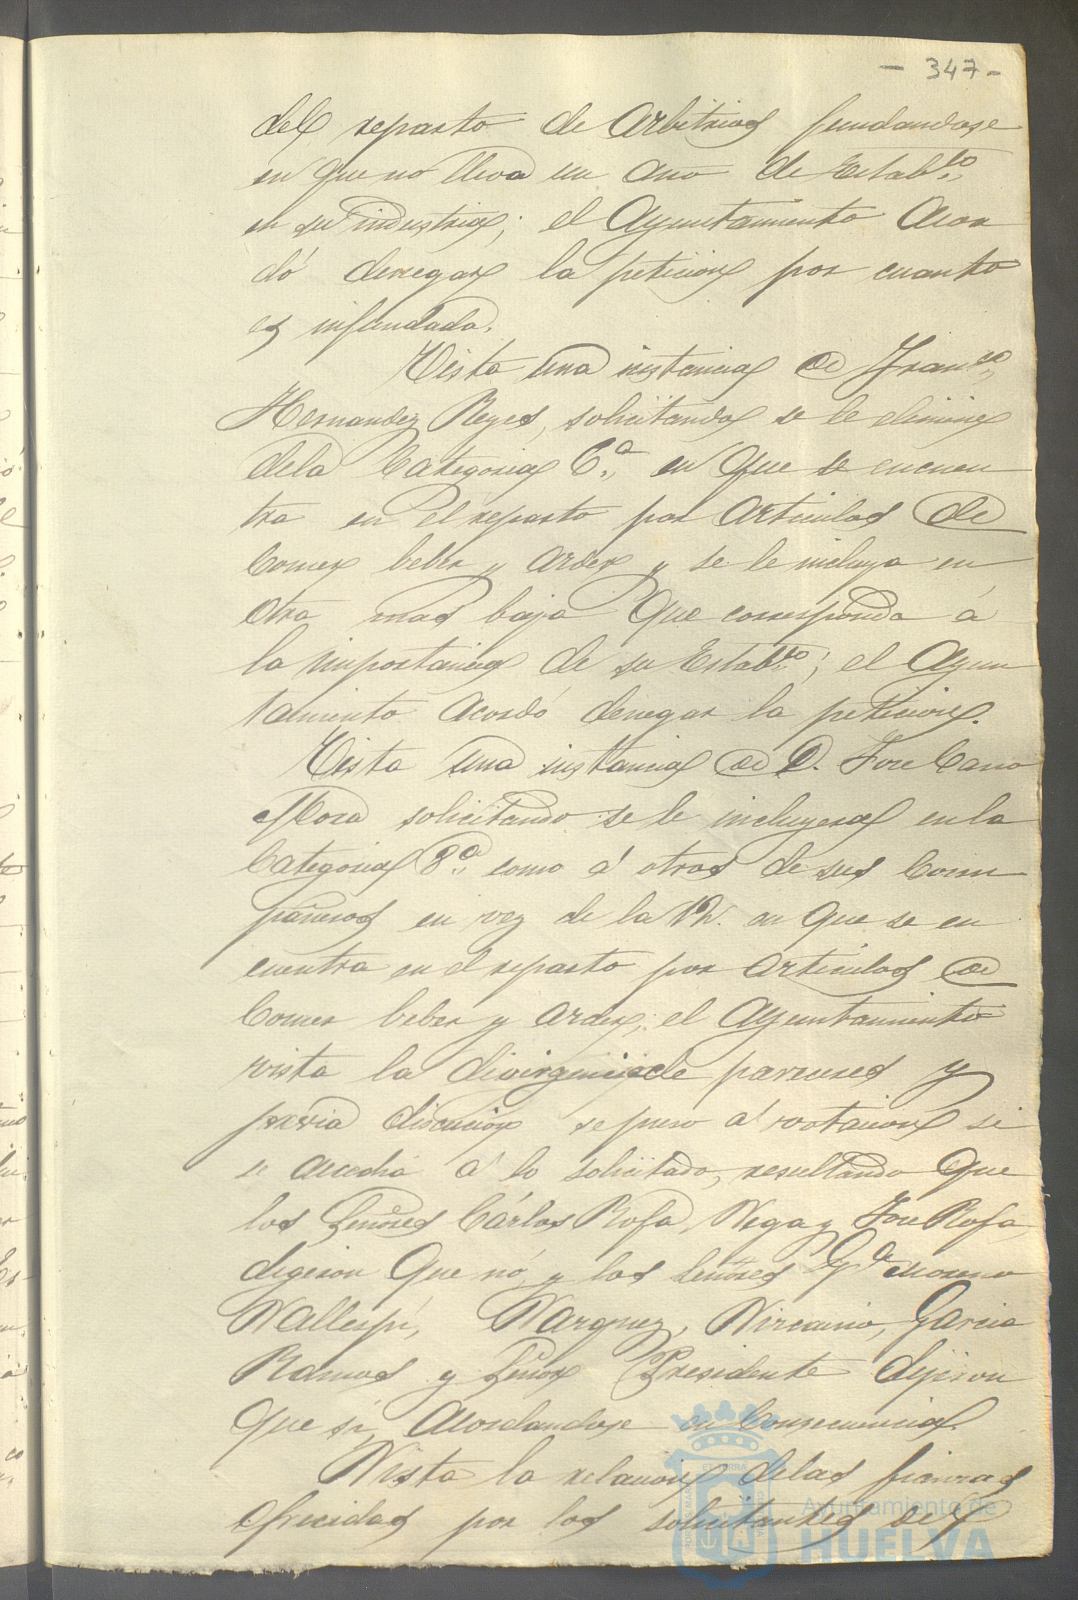 - 347 -
del reparto de Arbitrios fundandose
en que no lleva un año de Establ.to
en su industria; el Ayuntamiento Acor
dó denegar la peticion por cuanto
es infundada.
Vista una instancia de Fran.co
Hernandez Reyes, solicitando se le elimine
dela Categoria 6.a en que se encuen
tra en el reparto por Articulos de
Comer beber y arder y se le incluya en
otra mas baja que corresponda á
la importancia de su Establ.to; el Ayun
tamiento acordó denegar la peticion.
Vista una instancia de D. Jose Cano
Mora solicitando se le incluyera en la
Categoria 8.a como á otros de sus Com
pañeros en vez de la en que se en
cuentra en el reparto por Articulos de
Comer beber y arder; el Ayuntamiento
vista la divirgencia de pareceres y
previa discucion se puso á votacion si
se accedia á lo solicitado, resultando que
los Señores Cárlos Rofa, Vega y Jose Rofa,
digeron que nó, y los Señores G.a Moreno
Vallespi, Vazquez, Vizcaino, Garcia
Ramos y Señor Presidente dijeron
que sí, acordandose en consecuencia.
Vista la relacion delas fianzas
ofrecidas por los solicitantes de
Ayuntamiento de
HUELVA